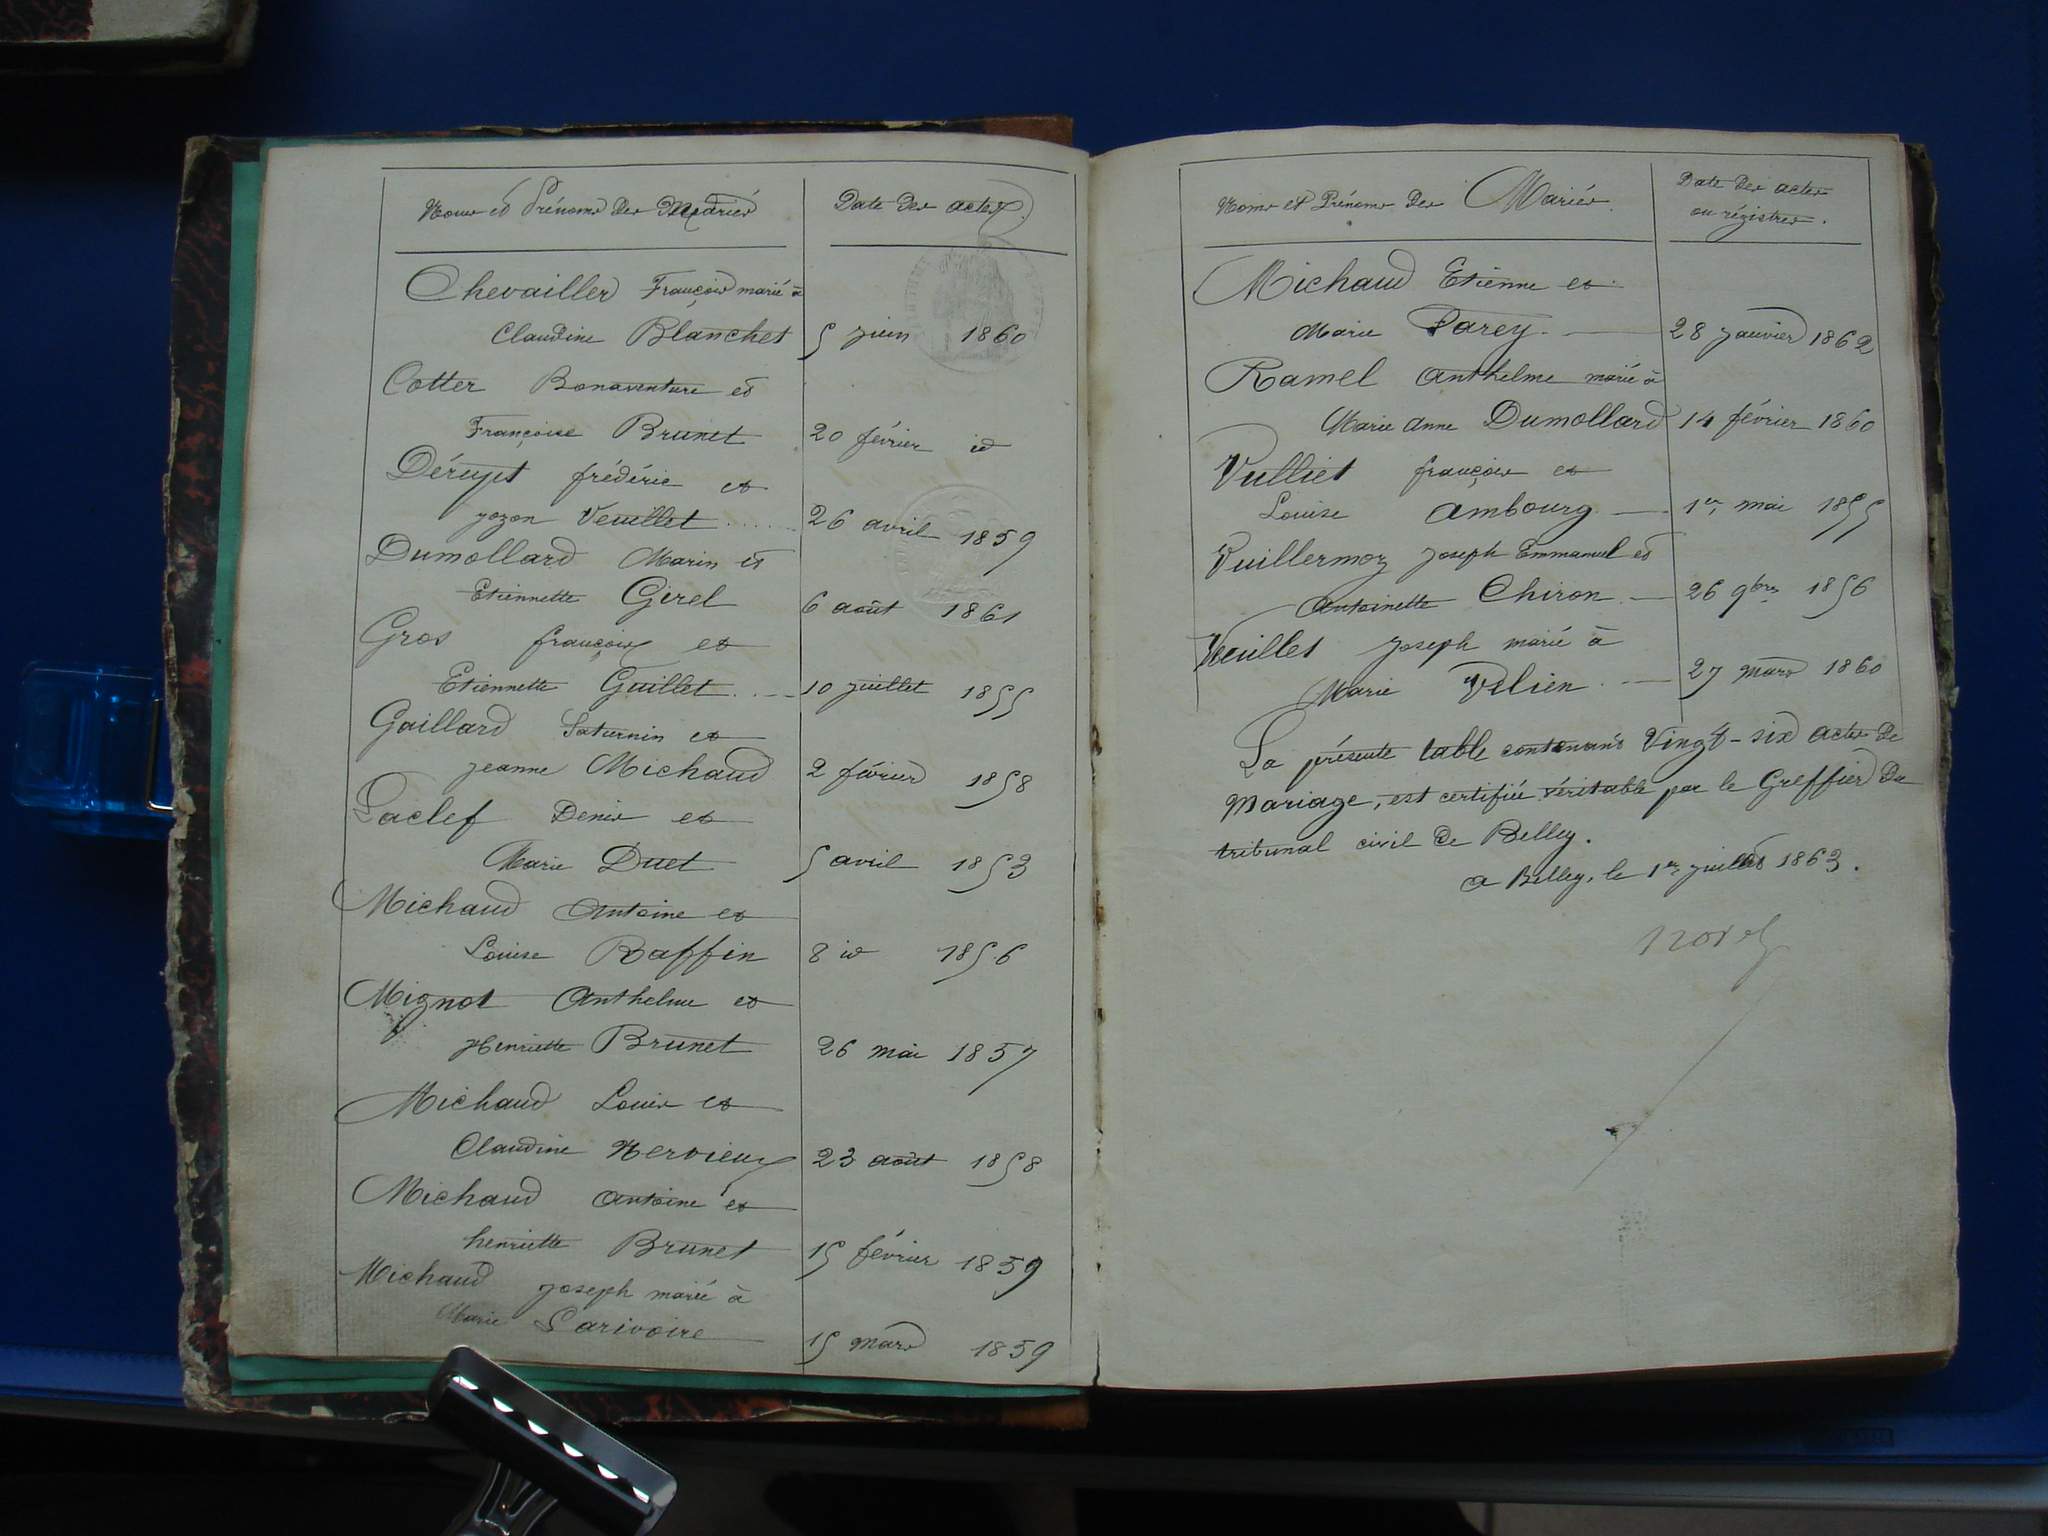 Noms et Prénoms des Mariés
Date des actes.
Chevailler François marié à
Claudine Blanchet 5 juin 1860
Cotter Bonaventure et
Françoise Brunet 20 février id
Dérupt frédéric et
jozon Veuillet ...... 26 avril 1859
Dumollard Marin et
Etiennette Girel 6 août 1861
Gros françois et
Etiennette Guillet . . — 10 juillet 1855
Gaillard Saturnin et
jeanne Michaud 2 février 1858
Laclef Denis et
Marie Duet 5 avril 1853
Michaud Antoine et
Louise Raffin 8 id 1856
Mignot Anthelme et
Henriette Brunet 26 mai 1857
Michaud Louis et
Claudine Hervieux 23 août 1858
Michaud Antoine et
henriette Brunet 15 février 1859
Michaud joseph marié à
Marie Larivoire 15 mars 1859
Noms et Prénoms des Mariés.
Date des actes
ou régistres.
Michaud Etienne et
Marie Parey. — 28 janvier 1862
Ramel Anthelme marié à
Marie anne Dumollard 14 février 1860
Vulliet françois et
Louise Ambourg — 1er mai 1855
Vuillermoz joseph Emmanuel et
Antoinette Chiron. — 26 9bre 1856
Veuillet joseph marié à
Marie . — 27 mars 1860
La présente table contenant Vingt-six actes de
Mariage, est certifiée véritable par le Greffier du
tribunal civil de Belley.
a Belley, le 1er juillet 1863.